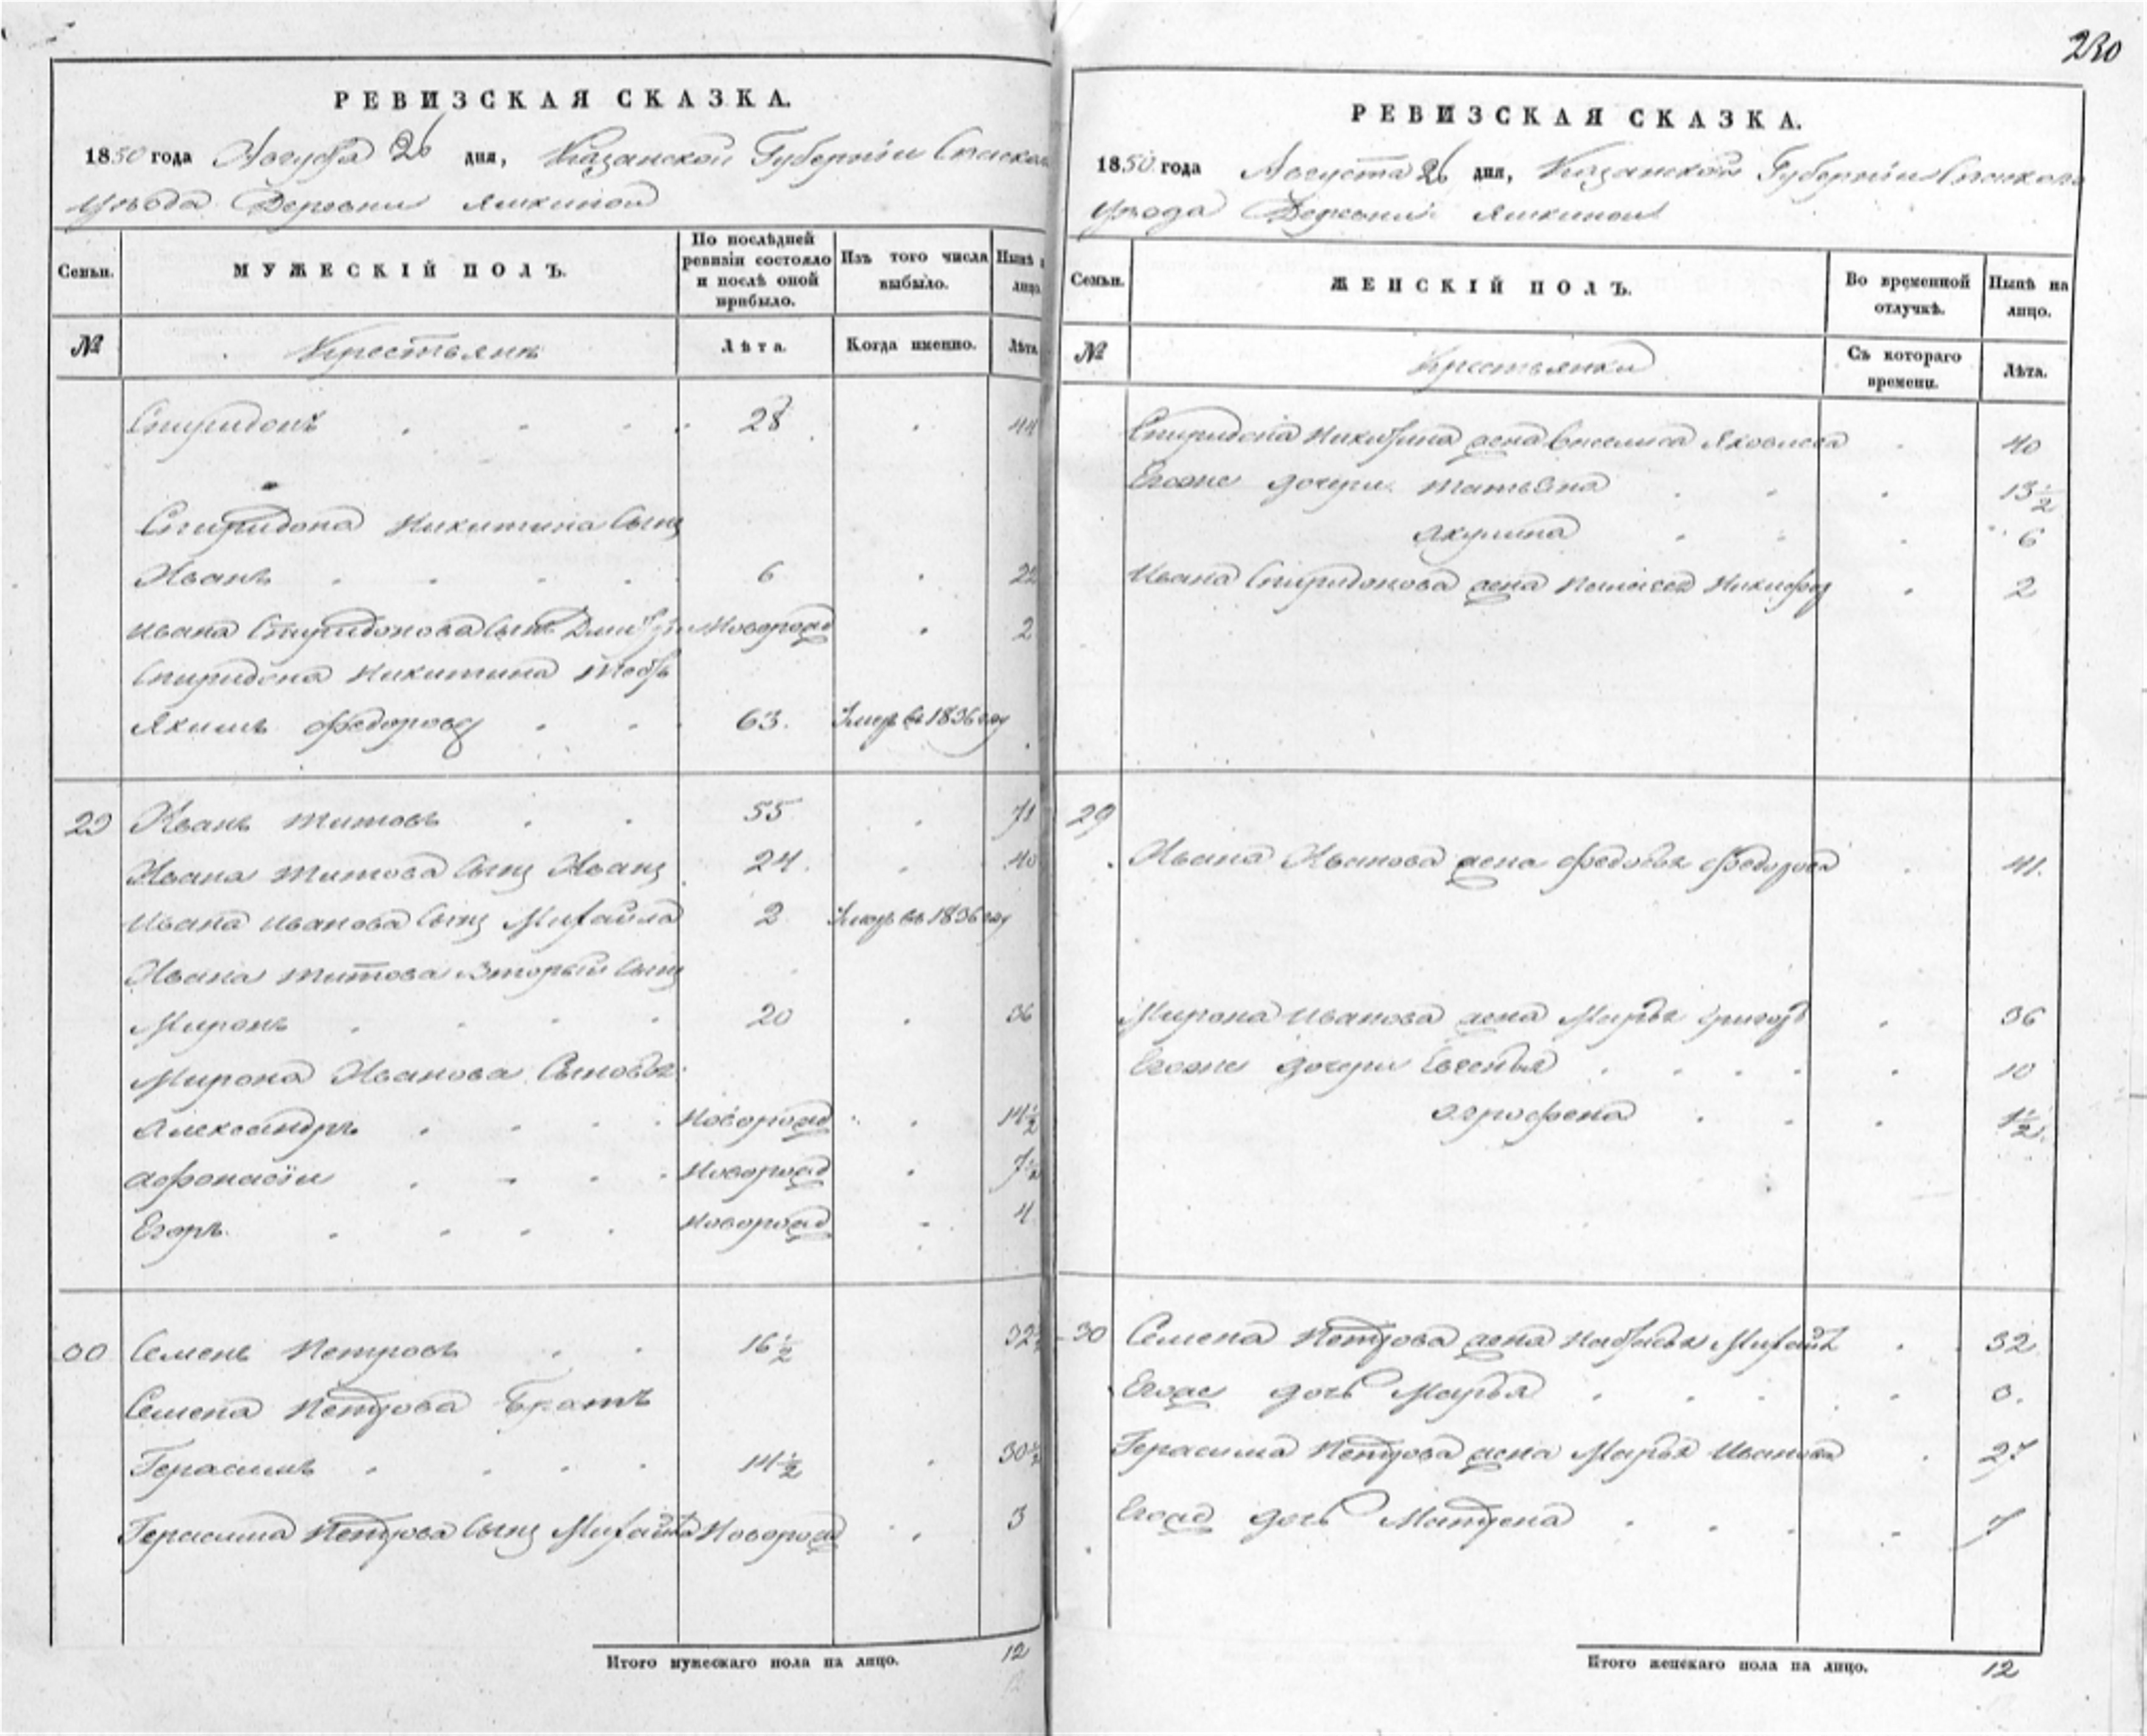 230
РЕВИЗСКАЯ СКАЗКА.
1850 года Августа 26 дня, Казанской Губернiи Спаскаго
уѣзда Деревни Яшкиной
Семьи.
МУЖЕСКІЙ ПОЛЪ.
По послѣдней ревизіи состояло и послѣ оной прибыло.
Изъ того числа выбыло.
Нынѣ на лицо.
№
Крестьянъ
Лѣта.
Когда именно.
Лѣта.
Спиридонъ 28 44
Спиридона Никитина Сынъ
Иванъ 6 22
Ивана Спиридонова Сынъ Дмитрiи Новорожд 2
Спиридона Никитина
Якимъ Федоровъ 63. Умеръ въ 1836 году
29 Иванъ Титовъ 55 71
Ивана Титова Сынъ Иванъ 24. 40
Ивана Иванова Сынъ Михаила 2 Умеръ въ 1836 году
Ивана Титова Вторый Сынъ
Миронъ 20 36
Мирона Иванова Сыновья
Александръ Новорожд 14½
Афонасiи Новорожд 7½
Егоръ Новорожд 4
30 Семенъ Петровъ 16½ 32½
Семена Петрова Братъ
Герасимъ 14½ 30½
Герасима Петрова Сынъ Михайла Новорожд 3
Итого мужескаго пола на лицо. 12
РЕВИЗСКАЯ СКАЗКА.
1850 года Августа 26 дня, Казанской Губернiи Спаскаго
уѣзда Деревни Яшкиной
Семьи.
ЖЕНСКІЙ ПОЛЪ.
Во временной отлучкѣ.
Нынѣ на лицо.
№
Крестьянки
Съ котораго времени.
Лѣта.
Спиридона Никитина жена Яковлева 40
Егоже дочери Татьяна 13½
Акулина 6
Ивана Спиридонова жена Пелагея Никифор 2
29
Ивана Иванова жена Федосья Федорова 41.
Мирона Иванова жена Марья Григорь 36
Егоже дочери Евгенья 10
Агрофена 1½
30 Семена Петрова жена Настасья Михайл 32
Егоже дочь Марья
Герасима Петрова жена Марья Иванова 27
Егоже дочь Матрена 7
Итого женскаго пола на лицо. 12